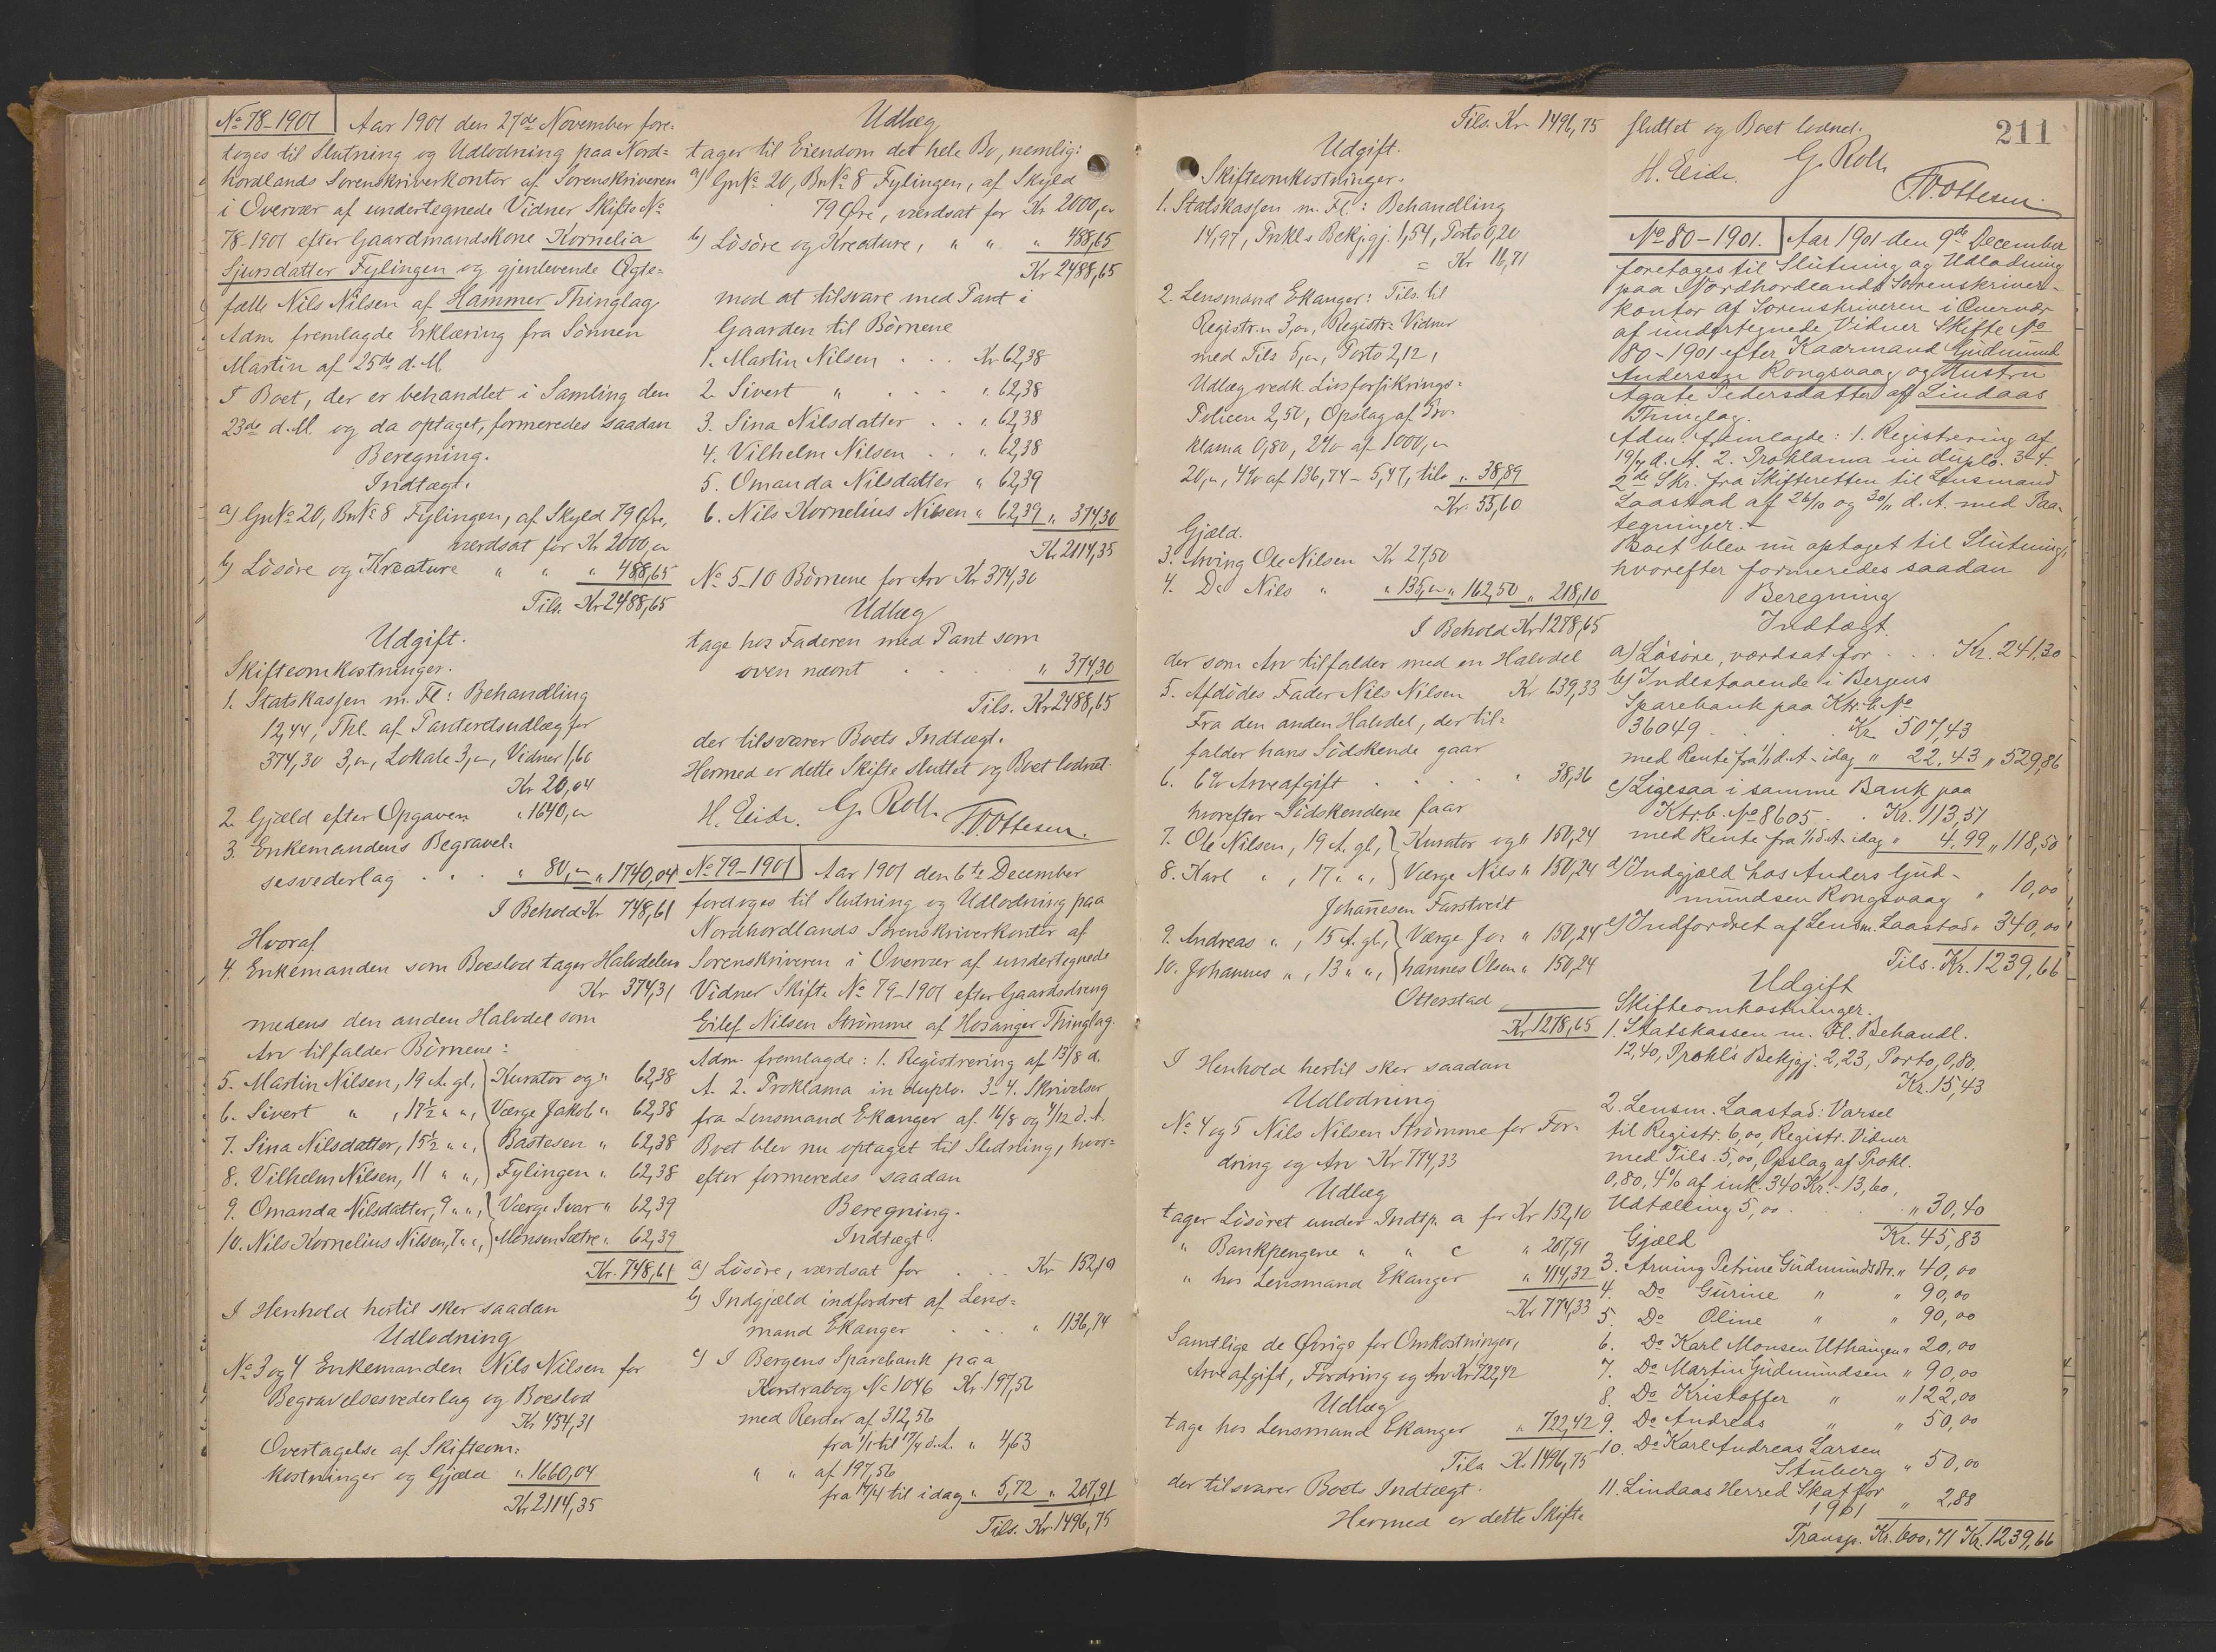 No 78-1901 Aar 1901 den 27de November fore-
toges til Slutning og Udlodning paa Nord-
hordlands Sorenskriverkontor af Sorenskriveren
i Overvær af undertegnede Vidner Skifte No
78-1901 efter Gaardmandskone Kornelia
Sjursdatter Fylingen og gjenlevende Ægte-
fælle Nils Nilsen af Hammer Thinglag.
Adm. fremlagde Erklæring fra Sønnen
Martin af 25de d. M.
I Boet, der er behandlet i Samling den
23de d. M. og da optaget, formeredes saadan
Beregning.
Indtægt.
a) Gn No 20, Bn No 8 Fylingen, af Skyld 79 Øre,
værdsat for Kr 2000,-
b) Løsøre og Kreature " " " 488,65
Tils. Kr 2488,65
Udgift.
Skifteomkostninger.
1. Statskassen m. Fl: Behandling
12,44, Thl. af Panteretsudlæg for
374,30 3,-, Lokale 3,-, Vidner 1,60
Kr 20,04
2. Gjæld efter Opgaven " 1640,-
3. Enkemandens Begravel-
sesvederlag . . . " 80,- " 1740,04
I Behold Kr 748,61
Hvoraf
4. Enkemanden som Boeslod tager Halvdelen
Kr 374,31
medens den anden Halvdel som
Arv tilfalder Børnene:
5. Martin Nilsen, 19 A. gl, Kurator og " 62,38
6. Sivert " , 17½ " ", Værge Jakob " 62,38
7. Sina Nilsdatter, 15½ " ", Bastesen " 62,38
8. Vilhelm Nilsen, 11 " ", Fylingen " 62,38
9. Omanda Nilsdatter, 9 " ", Værge Ivar " 62,39
10. Nils Kornelius Nilsen, 7 " ", Monsen Sætre " 62,39
Kr. 748,61
I Henhold hertil sker saadan
Udlodning
No 3 og 4 Enkemanden Nils Nilsen for
Begravelsesvederlag og Boeslod
Kr 454,31
Overtagelse af Skifteom-
kostninger og Gjæld " 1660,04
Kr 2114,35
Udlæg
tager til Eiendom det hele Bo, nemlig:
a) Gn No 20, Bn No 8 Fylingen, af Skyld
79 Øre, værdsat for Kr 2000,-
b) Løsøre og Kreature, " " " 488,65
Kr 2488,65
mod at tilsvare med Pant i
Gaarden til Børnene
1. Martin Nilsen . . . Kr 62,38
2. Sivert " . . . " 62,38
3. Sina Nilsdatter . . " 62,38
4. Vilhelm Nilsen . . " 62,38
5. Omanda Nilsdatter " 62,39
6. Nils Kornelius Nilsen " 62,39 " 374,30
Kr 2114,35
No 5-10 Børnene for Arv Kr 374,30
Udlæg
tage hos Faderen med Pant som
oven nævnt . . . " 374,30
Tils. Kr 2488,65
der tilsvarer Boets Indtægt.
Hermed er dette Skifte sluttet og Boet lodnet.
H. Eide. G. Roll. T. Ottesen.
No 79-1901 Aar 1901 den 6te December
foretoges til Slutning og Udlodning paa
Nordhordlands Sorenskriverkontor af
Sorenskriveren i Overvær af undertegnede
Vidner Skifte No 79-1901 efter Gaardsdreng
Eilef Nilsen Strømme af Hosanger Thinglag.
Adm. fremlagde: 1. Registrering af 13/8 d.
A. 2. Proklama in duplo. 3-4. Skrivelser
fra Lensmand Ekanger af 16/8 og 4/12 d. A.
Boet blev nu optaget til Slutning, hvor-
efter formeredes saadan
Beregning.
Indtægt.
a) Løsøre, værdsat for . . . Kr 152,10
b) Indgjæld indfordret af Lens-
mand Ekanger . . . " 1136,74
c) I Bergens Sparebank paa
Kontrabog No 1046 Kr. 197,56
med Renter af 312,56
fra 1/1 til 17/4 d. A. " 4,63
" " af 197,56
fra 17/4 til idag " 5,72 " 207,91
Tils. Kr. 1496,75
Tils. Kr 1496,75
Udgift.
Skifteomkostninger.
1. Statskassen m. Fl: Behandling
14,97, Prokls Bekjgj. 1,54, Porto 0,20
= Kr 16,71
2. Lensmand Ekanger: Tils. til
Registr. 3,-, Registr: Vidner
med Tils 5,-, Porto 2,12,
Udlæg vedk. Livsforsikrings-
Policen 2,50, Opslag af Pro-
klama 0,80, 2% af 1000,-
20,-, 4% af 136,74 - 5,47, tils " 38,89
Kr. 55,60
Gjæld.
3. Arving Ole Nilsen Kr 27,50
4. Do Nils " " 135,- " 162,50 " 218,10
I Behold Kr 1278,65
der som Arv tilfalder med en Halvdel
5. Afdødes Fader Nils Nilsen Kr 639,33
Fra den anden Halvdel, der til-
falder hans Sødskende gaar
6. 6% Arveafgift . . . " 38,36
hvorefter Sødskendene faar
7. Ole Nilsen, 19 A. gl, Kurator og " 150,24
8. Karl " , 17 " ", Værge Nils " 150,24
Johannesen Farstveit
9. Andreas " , 15 A. gl, Værge Jo- " 150,24
10. Johannes " , 13 " ", hannes Olsen " 150,24
Otterstad
Kr 1278,65
I Henhold hertil sker saadan
Udlodning
No 4 og 5 Nils Nilsen Strømme for For-
dring og Arv Kr 774,33
Udlæg
tager Løsøret under Indtp. a for Kr 152,10
" Bankpengene " " c " 207,91
" hos Lensmand Ekanger " 414,32
Kr 774,33
Samtlige de Øvrige for Omkostninger,
Arveafgift, Fordring og Arv Kr 722,42
Udlæg
tage hos Lensmand Ekanger " 722,42
Tils Kr 1496,75
der tilsvarer Boets Indtægt.
Hermed er dette Skifte
sluttet og Boet lodnet.
211
H. Eide. G. Roll.
T. Ottesen.
No 80-1901. Aar 1901 den 9de December
foretoges til Slutning og Udlodning
paa Nordhordlands Sorenskriver-
kontor af Sorenskriveren i Overvær
af undertegnede Vidner Skifte No
80-1901 efter Kaarmand Gudmund
Andersen Rongsvaag og Hustru
Agate Pedersdatter af Lindaas
Thinglag.
Adm. fremlagde: 1. Registrering af
19/7 d. A. 2. Proklama in duplo. 3-4.
2de Skr. fra Skifteretten til Lensmand
Laastad af 26/10 og 30/11 d. A. med Paa-
tegninger.
Boet blev nu optaget til Slutning,
hvorefter formeredes saadan
Beregning
Indtægt.
a) Løsøre, værdsat for . . . Kr. 241,30
b) Indestaaende i Bergens
Sparebank paa Ktr. b. No
36049 . . . Kr. 507,43
med Rente fra 1/1 d. A. - idag " 22,43 " 529,86
c) Ligesaa i samme Bank paa
Ktrb. No 8605 . . Kr. 113,51
med Rente fra 1/1 d. A. idag " 4,99 " 118,50
d) Indgjæld hos Anders Gud-
mundsen Rongsvaag " 10,00
e) Indfordret af Lensm. Laastad " 340,00
Tils. Kr. 1239,66
Udgift
Skifteomkostninger.
1. Statskassen m. Fl. Behandl.
12,40, Prokl's Bekjgj. 2,23, Porto, 0,80.
Kr. 15,43
2. Lensm. Laastad: Varsel
til Registr. 6,00, Registr. Vidner
med Tils. 5,00, Opslag af Prokl.
0,80, 4% af ink. 340 Kr. - 13,60,
Udtælling 5,00 . . . " 30,40
Kr. 45,83
Gjæld
3. Arving Petrine Gudmundsdtr. " 40,00
4. Do Gurine " " 90,00
5. Do Oline " " 90,00
6. Do Karl Monsen Uthaugen " 20,00
7. Do Martin Gudmundsen " 90,00
8. Do Kristoffer " " 122,00
9. Do Andreas " " 50,00
10. Do Karl Andreas Larsen
Stuberg " 50,00
11. Lindaas Herred Skat for
1901 " 2,88
Transp. Kr. 600,71 Kr. 1239,66